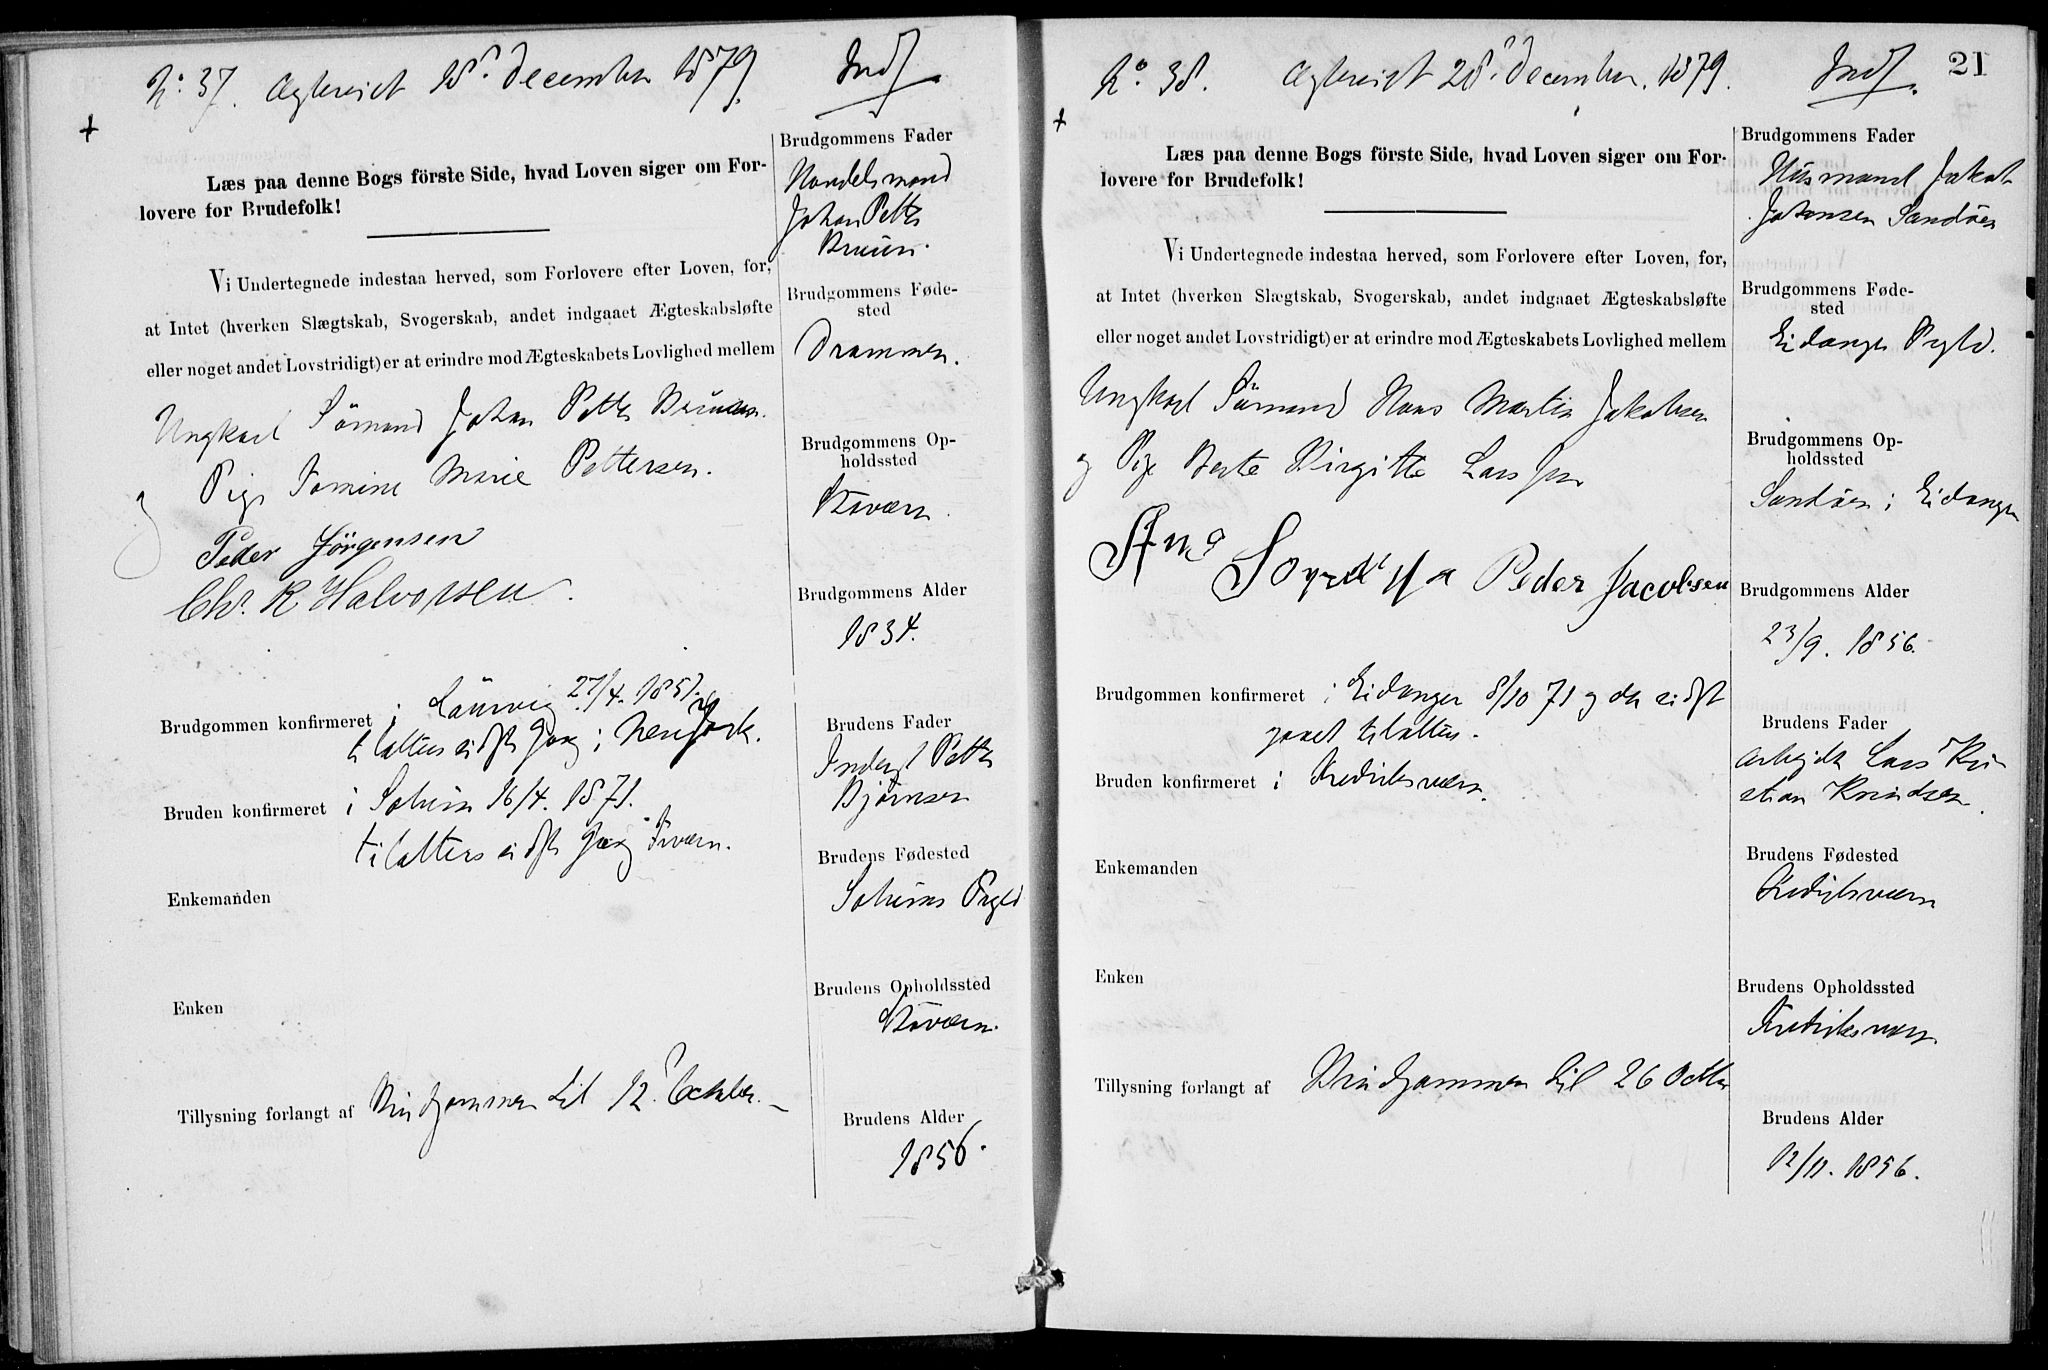 No. 37. Ægteviet 18de December 1879. Indf.
Læs paa denne Bogs förste Side, hvad Loven siger om For-
lovere for Brudefolk!
Vi Undertegnede indestaa herved, som Forlovere efter Loven, for,
at Intet (hverken Slægtskab, Svogerskab, andet indgaaet Ægteskabsløfte
eller noget andet Lovstridigt) er at erindre mod Ægteskabets Lovlighed mellem
Ungkarl Sömand Johan Petter Bruun.
og Pige Tomine Marie Pettersen.
Peder Jörgensen
Chr. R Halvorsen.
Brudgommen konfirmeret i Laurvig 27/4. 1851.
tilalters sidste Gang i New York.
Bruden konfirmeret i Solum 16/4. 1871.
tilalters sidste Gang
Enkemanden
Enken
Tillysning forlangt af Brudgommen til 12. October.
Brudgommens Fader
Handelsmand
Johan Petter
Bruun.
Brudgommens Føde-
sted
Drammen.
Brudgommens Op-
holdssted
Staværn
Brudgommens Alder
1834.
Brudens Fader
Petter
Bjørnsen
Brudens Fødested
Solums Pgld
Brudens Opholdssted
Staværn.
Brudens Alder
1856.
21
No. 38. Ægteviet 28de December. 1879. Indf.
Læs paa denne Bogs förste Side, hvad Loven siger om For-
lovere for Brudefolk!
Vi Undertegnede indestaa herved, som Forlovere efter Loven, for,
at Intet (hverken Slægtskab, Svogerskab, andet indgaaet Ægteskabsløfte
eller noget andet Lovstridigt) er at erindre mod Ægteskabets Lovlighed mellem
Ungkarl Sömand Hans Martin Jakobsen
og Pige Berte Birgitte Larssen
Peder Jacobsen
Brudgommen konfirmeret i Eidanger 8/10 71 og der sidst
gaaet tilalters.
Bruden konfirmeret i Fredriksværn.
Enkemanden
Enken
Tillysning forlangt af Brudgommen til 26 Octbr
Brudgommens Fader
Husmand Jakob
Johansen Sandöen
Brudgommens Føde-
sted
Eidanger Pgld.
Brudgommens Op-
holdssted
Sandöen i Eidanger
Brudgommens Alder
23/9. 1856.
Brudens Fader
Arbejder Lars Kri-
stian Knudsen.
Brudens Fødested
Fredriksværn
Brudens Opholdssted
Fredriksværn
Brudens Alder
12/11. 1856.